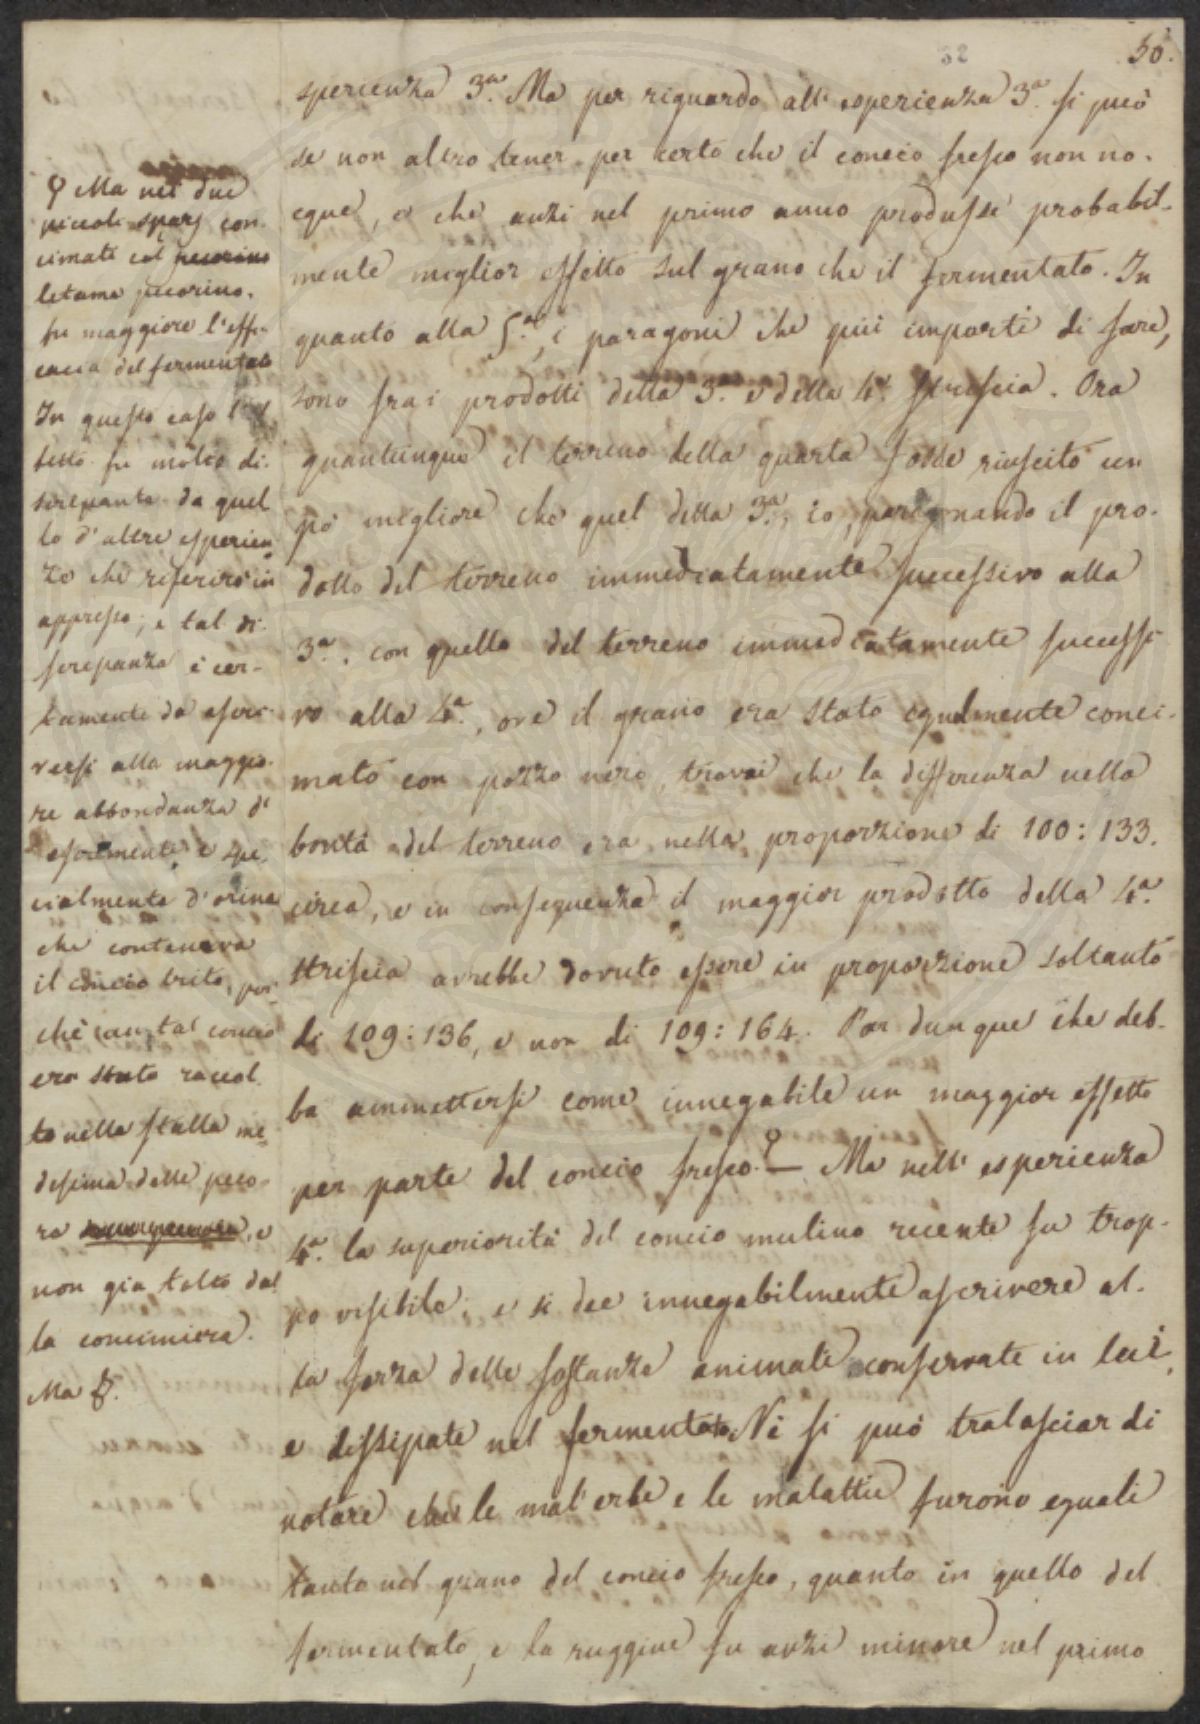 32
50.
sperienza 3.ª Ma per riguardo all'esperienza 3.ª si può
se non altro tener per certo che il concio fresco non no-
cque, e che anzi nel primo anno produsse probabil-
mente miglior effetto sul grano che il fermentato. In
quanto alla 5.ª, i paragoni che più importi di fare,
sono fra i prodotti della 3.ª e della 4.ª striscia. Ora
quantunque il terreno della quarta fosse riuscito un
pò migliore che quel della 3.ª, io, paragonando il pro-
dotto del terreno immediatamente successivo alla
3.ª, con quello del terreno immediatamente successi-
vo alla 4.ª, ove il grano era stato egualmente conci-
mato con pozzo nero, trovai che la differenza nella
bontà del terreno era nella proporzione di 100: 133.
circa, e in conseguenza il maggior prodotto della 4.ª
striscia avrebbe dovuto essere in proporzione soltanto
di 109: 136, e non di 109: 164. Par dunque che deb-
ba ammettersi come innegabile un maggior effetto
per parte del concio fresco. Ma nell'esperienza
4.ª la superiorità del concio mulino recente fu trop-
po visibile, e si dee innegabilmente ascrivere al-
la forza delle sostanze animali conservate in lui,
e dissipate nel fermentato. Nè si può tralasciar di
notare che le mal'erbe e le malattie furono eguali
tanto nel grano del concio fresco, quanto in quello del
fermentato, e la ruggine fu anzi minore nel primo
Ma nei due
piccoli spazj con-
cimati col pecorino
letame pecorino,
fu maggiore l'effi-
cacia del fermentato
In questo caso l'ef
fetto fu molto di-
screpante da quel
lo d'altre esperien
ze che riferirò in
appresso; e tal di-
screpanza è cer-
tamente da ascri-
versi alla maggio-
re abbondanza di
escrementi e spe-
cialmente d'orina
che conteneva
il concio trito, per
chè tal concio
era stato raccol
to nella stalla me-
desima delle peco-
re, e
non già tolto dal
la concimiera.
Ma